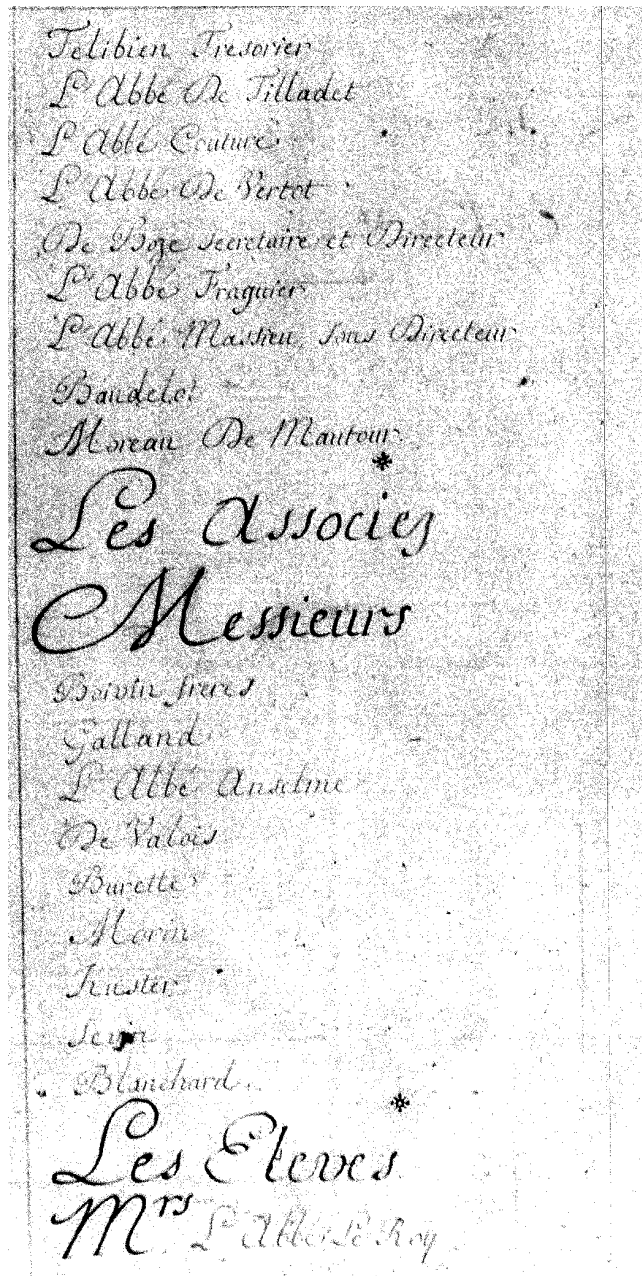 Felibien Tresorier
L'Abbé De Tilladet
L'Abbé Couture
L'Abbé De Vertot
De Boze secretaire et Directeur
L'Abbé Fraguier
L'Abbé Massieu sous Directeur
Baudelot
Moreau De Mautour
Les Associez
Messieurs
Boivin freres
Galland
L'Abbé Anselme
De Valois
Burette
Morin
Kuster
Sevin
Blanchard
Les Eleves
Mrs L'Abbé Le Roy